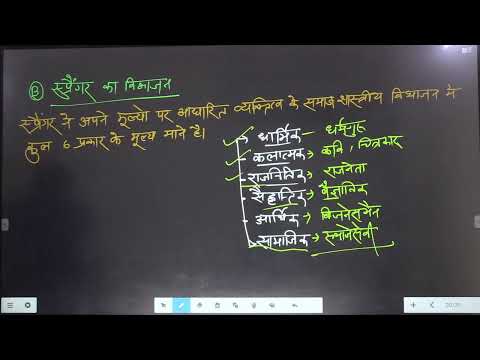 (B) स्प्रैंगर का विभाजन
स्प्रैंगर ने अपने मूल्यो पर आधारित व्यक्तित्व के समाजशास्त्रीय विभाजन में
कुल 6 प्रकार के मूल्य माने है।
धार्मिक - धर्मगुरु
कलात्मक → कवि, चित्रकार
राजनितिक → राजनेता
सैद्धांतिक → वैज्ञानिक
आर्थिक → बिजनेसमैन
सामाजिक → समाजसेवी